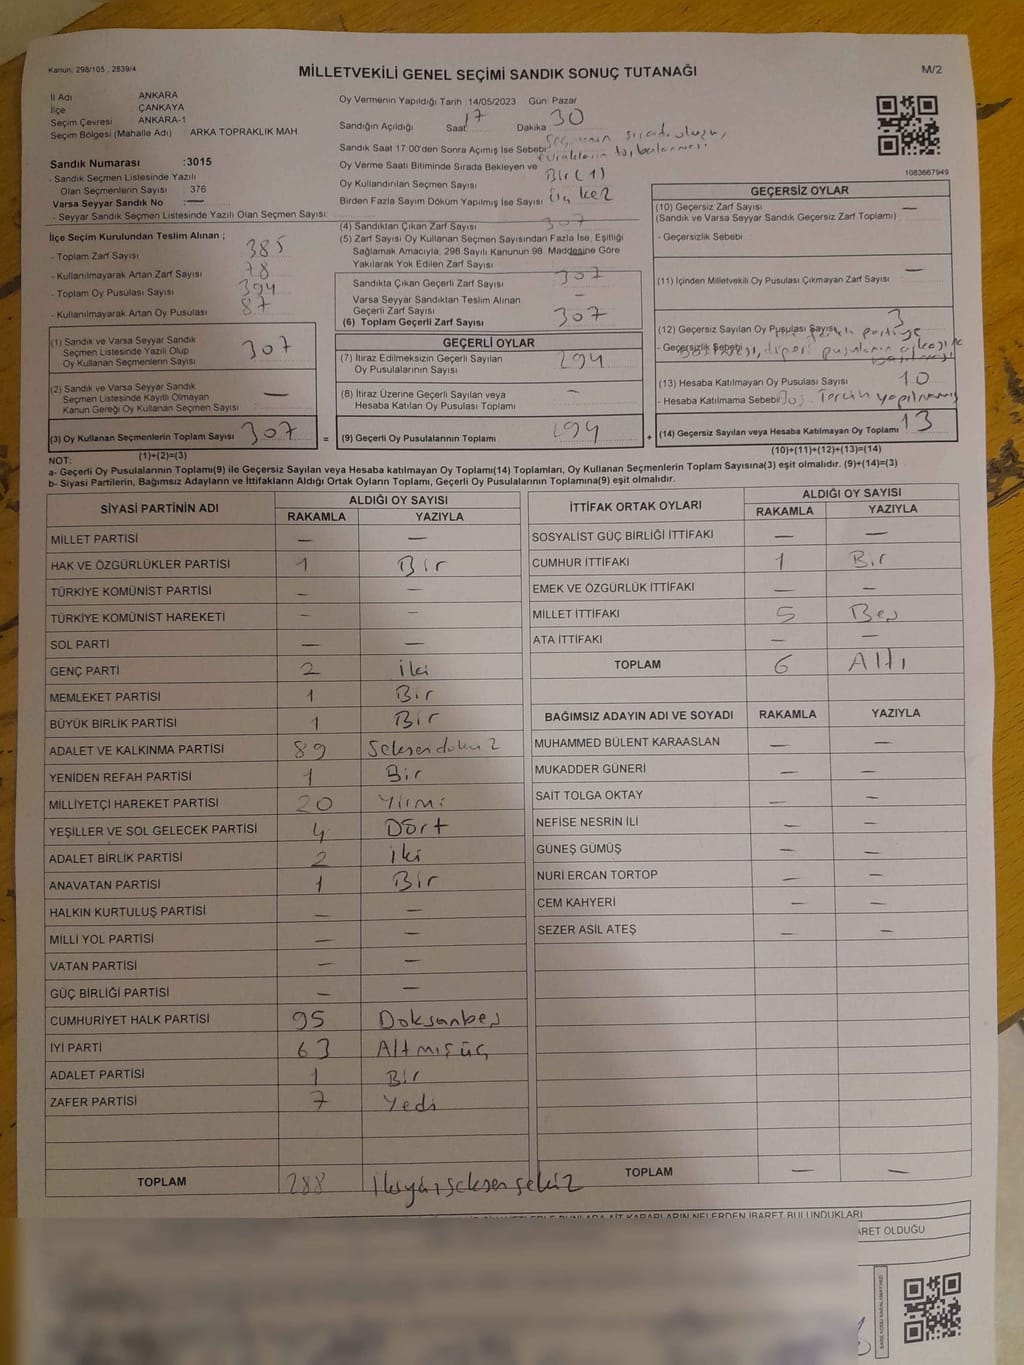 Kanun: 298/105 , 2839/4
MİLLETVEKİLİ GENEL SEÇİMİ SANDIK SONUÇ TUTANAĞI
M/2
İl Adı ANKARA
İlçe ÇANKAYA
Seçim Çevresi ANKARA-1
Seçim Bölgesi (Mahalle Adı) : ARKA TOPRAKLIK MAH.
Sandık Numarası :3015
- Sandık Seçmen Listesinde Yazılı
Olan Seçmenlerin Sayısı 376
Varsa Seyyar Sandık No : —
- Seyyar Sandık Seçmen Listesinde Yazılı Olan Seçmen Sayısı:
Oy Vermenin Yapıldığı Tarih :14/05/2023 Gün: Pazar
Sandığın Açıldığı Saat 17 Dakika 30
Sandık Saat 17:00'den Sonra Açımış İse Sebebi: Seçmenin sırada oluşu,
evrakların toplanması
Oy Verme Saati Bitiminde Sırada Bekleyen ve
Oy Kullandırılan Seçmen Sayısı Bir (1)
Birden Fazla Sayım Döküm Yapılmış İse Sayısı üç kez
1083667949
İlçe Seçim Kurulundan Teslim Alınan ;
- Toplam Zarf Sayısı 385
- Kullanılmayarak Artan Zarf Sayısı 78
- Toplam Oy Pusulası Sayısı 394
- Kullanılmayarak Artan Oy Pusulası 87
(1) Sandık ve Varsa Seyyar Sandık
Seçmen Listesinde Yazılı Olup
Oy Kullanan Seçmenlerin Sayısı 307
(2) Sandık ve Varsa Seyyar Sandık
Seçmen Listesinde Kayıtlı Olmayan
Kanun Gereği Oy Kullanan Seçmen Sayısı —
(3) Oy Kullanan Seçmenlerin Toplam Sayısı 307
(1)+(2)=(3)
(4) Sandıktan Çıkan Zarf Sayısı 307
(5) Zarf Sayısı Oy Kullanan Seçmen Sayısından Fazla İse, Eşitliği
Sağlamak Amacıyla, 298 Sayılı Kanunun 98. Maddesine Göre
Yakılarak Yok Edilen Zarf Sayısı
Sandıkta Çıkan Geçerli Zarf Sayısı 307
Varsa Seyyar Sandıktan Teslim Alınan
Geçerli Zarf Sayısı —
(6) Toplam Geçerli Zarf Sayısı 307
GEÇERLİ OYLAR
(7) İtiraz Edilmeksizin Geçerli Sayılan
Oy Pusulalarının Sayısı 294
(8) İtiraz Üzerine Geçerli Sayılan veya
Hesaba Katılan Oy Pusulası Toplamı —
= (9) Geçerli Oy Pusulalarının Toplamı 294
GEÇERSİZ OYLAR
(10) Geçersiz Zarf Sayısı —
(Sandık ve Varsa Seyyar Sandık Geçersiz Zarf Toplamı)
- Geçersizlik Sebebi
(11) İçinden Milletvekili Oy Pusulası Çıkmayan Zarf Sayısı —
(12) Geçersiz Sayılan Oy Pusulası Sayısı 3
- Geçersizlik Sebebi
(13) Hesaba Katılmayan Oy Pusulası Sayısı 10
- Hesaba Katılmama Sebebi Boş. Tercih yapılmamış
+ (14) Geçersiz Sayılan veya Hesaba Katılmayan Oy Toplamı 13
(10)+(11)+(12)+(13)=(14)
NOT:
a- Geçerli Oy Pusulalarının Toplamı(9) ile Geçersiz Sayılan veya Hesaba katılmayan Oy Toplamı(14) Toplamları, Oy Kullanan Seçmenlerin Toplam Sayısına(3) eşit olmalıdır. (9)+(14)=(3)
b- Siyasi Partilerin, Bağımsız Adayların ve İttifakların Aldığı Ortak Oyların Toplamı, Geçerli Oy Pusulalarının Toplamına(9) eşit olmalıdır.
SİYASİ PARTİNİN ADI ALDIĞI OY SAYISI
RAKAMLA YAZIYLA
MİLLET PARTİSİ — —
HAK VE ÖZGÜRLÜKLER PARTİSİ 1 Bir
TÜRKİYE KOMÜNİST PARTİSİ — —
TÜRKİYE KOMÜNİST HAREKETİ — —
SOL PARTİ — —
GENÇ PARTİ 2 iki
MEMLEKET PARTİSİ 1 Bir
BÜYÜK BİRLİK PARTİSİ 1 Bir
ADALET VE KALKINMA PARTİSİ 89 Seksendokuz
YENİDEN REFAH PARTİSİ 1 Bir
MİLLİYETÇİ HAREKET PARTİSİ 20 Yirmi
YEŞİLLER VE SOL GELECEK PARTİSİ 4 Dört
ADALET BİRLİK PARTİSİ 2 iki
ANAVATAN PARTİSİ 1 Bir
HALKIN KURTULUŞ PARTİSİ — —
MİLLİ YOL PARTİSİ — —
VATAN PARTİSİ — —
GÜÇ BİRLİĞİ PARTİSİ — —
CUMHURİYET HALK PARTİSİ 95 Doksanbeş
İYİ PARTİ 63 Altmışüç
ADALET PARTİSİ 1 Bir
ZAFER PARTİSİ 7 Yedi
TOPLAM 288 ikiyüzseksensekiz
İTTİFAK ORTAK OYLARI ALDIĞI OY SAYISI
RAKAMLA YAZIYLA
SOSYALİST GÜÇ BİRLİĞİ İTTİFAKI — —
CUMHUR İTTİFAKI 1 Bir
EMEK VE ÖZGÜRLÜK İTTİFAKI — —
MİLLET İTTİFAKI 5 Beş
ATA İTTİFAKI — —
TOPLAM 6 Altı
BAĞIMSIZ ADAYIN ADI VE SOYADI RAKAMLA YAZIYLA
MUHAMMED BÜLENT KARAASLAN — —
MUKADDER GÜNERİ — —
SAİT TOLGA OKTAY — —
NEFİSE NESRİN İLİ — —
GÜNEŞ GÜMÜŞ — —
NURİ ERCAN TORTOP — —
CEM KAHYERİ — —
SEZER ASİL ATEŞ — —
TOPLAM — —
KARARLARIN NELERDEN İBARET BULUNDUKLARI
ARET OLDUĞU